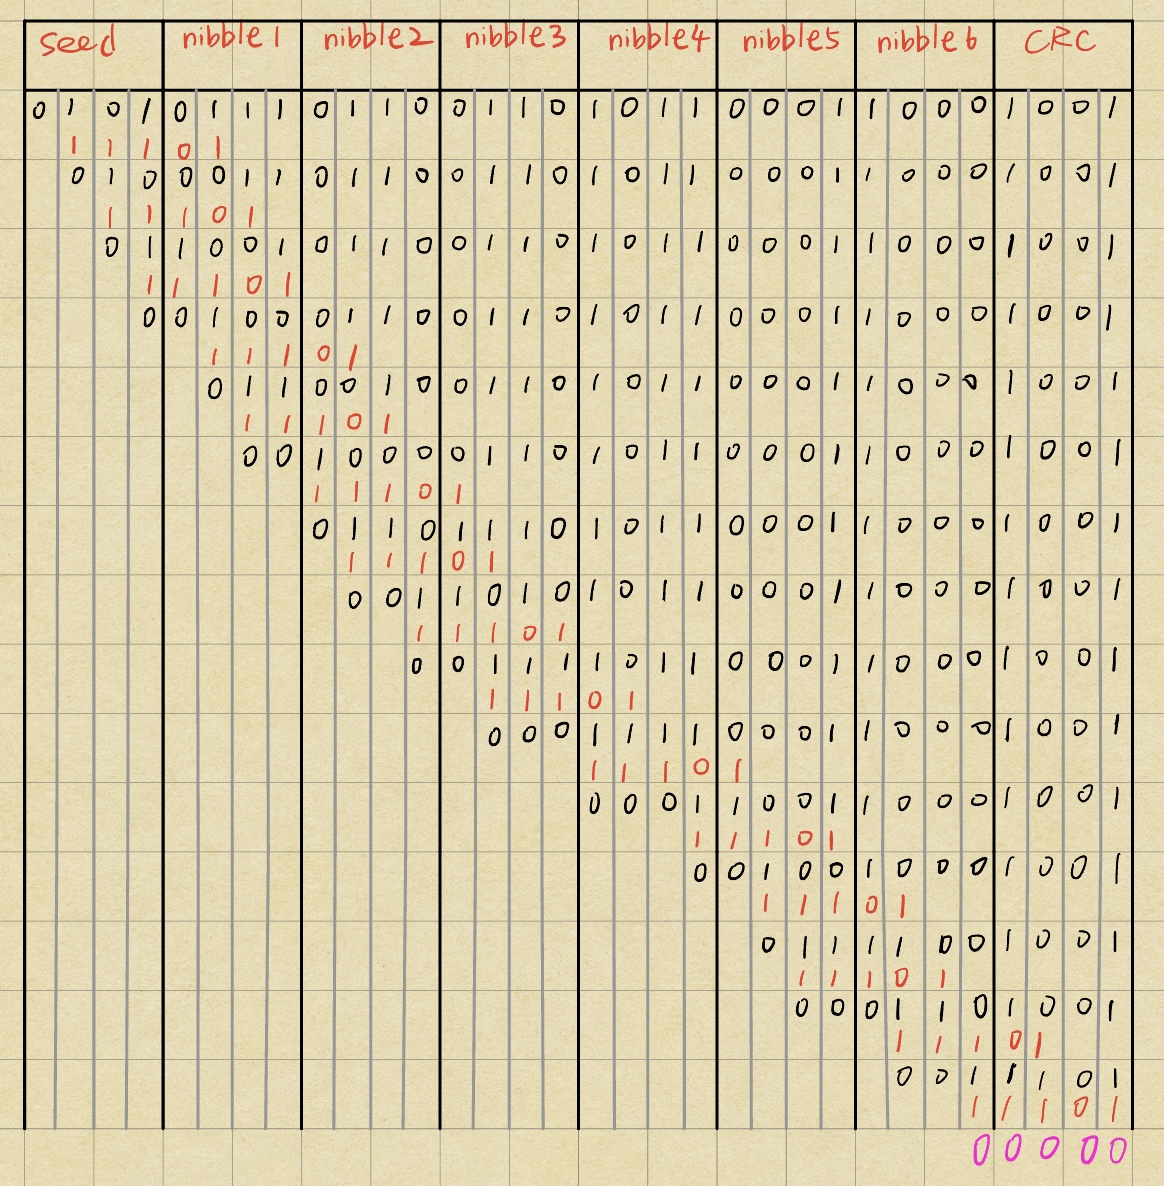 seed nibble1 nibble2 nibble3 nibble4 nibble5 nibble6 CRC
0 1 0 1 0 1 1 1 0 1 1 0 0 1 1 0 1 0 1 1 0 0 0 1 1 0 0 0 1 0 0 1
1 1 1 0 1
0 1 0 0 0 1 1 0 1 1 0 0 1 1 0 1 0 1 1 0 0 0 1 1 0 0 0 1 0 0 1
1 1 1 0 1
0 1 1 0 0 1 0 1 1 0 0 1 1 0 1 0 1 1 0 0 0 1 1 0 0 0 1 0 0 1
1 1 1 0 1
0 0 1 0 0 0 1 1 0 0 1 1 0 1 0 1 1 0 0 0 1 1 0 0 0 1 0 0 1
1 1 1 0 1
0 1 1 0 0 1 0 0 1 1 0 1 0 1 1 0 0 0 1 1 0 0 0 1 0 0 1
1 1 1 0 1
0 0 1 0 0 0 0 1 1 0 1 0 1 1 0 0 0 1 1 0 0 0 1 0 0 1
1 1 1 0 1
0 1 1 0 1 1 1 0 1 0 1 1 0 0 0 1 1 0 0 0 1 0 0 1
1 1 1 0 1
0 0 1 1 0 1 0 1 0 1 1 0 0 0 1 1 0 0 0 1 0 0 1
1 1 1 0 1
0 0 1 1 1 1 0 1 1 0 0 0 1 1 0 0 0 1 0 0 1
1 1 1 0 1
0 0 0 1 1 1 1 0 0 0 1 1 0 0 0 1 0 0 1
1 1 1 0 1
0 0 0 1 1 0 0 1 1 0 0 0 1 0 0 1
1 1 1 0 1
0 0 1 0 0 1 0 0 0 1 0 0 1
1 1 1 0 1
0 1 1 1 1 0 0 1 0 0 1
1 1 1 0 1
0 0 0 1 1 0 1 0 0 1
1 1 1 0 1
0 0 1 1 1 0 1
1 1 1 0 1
0 0 0 0 0